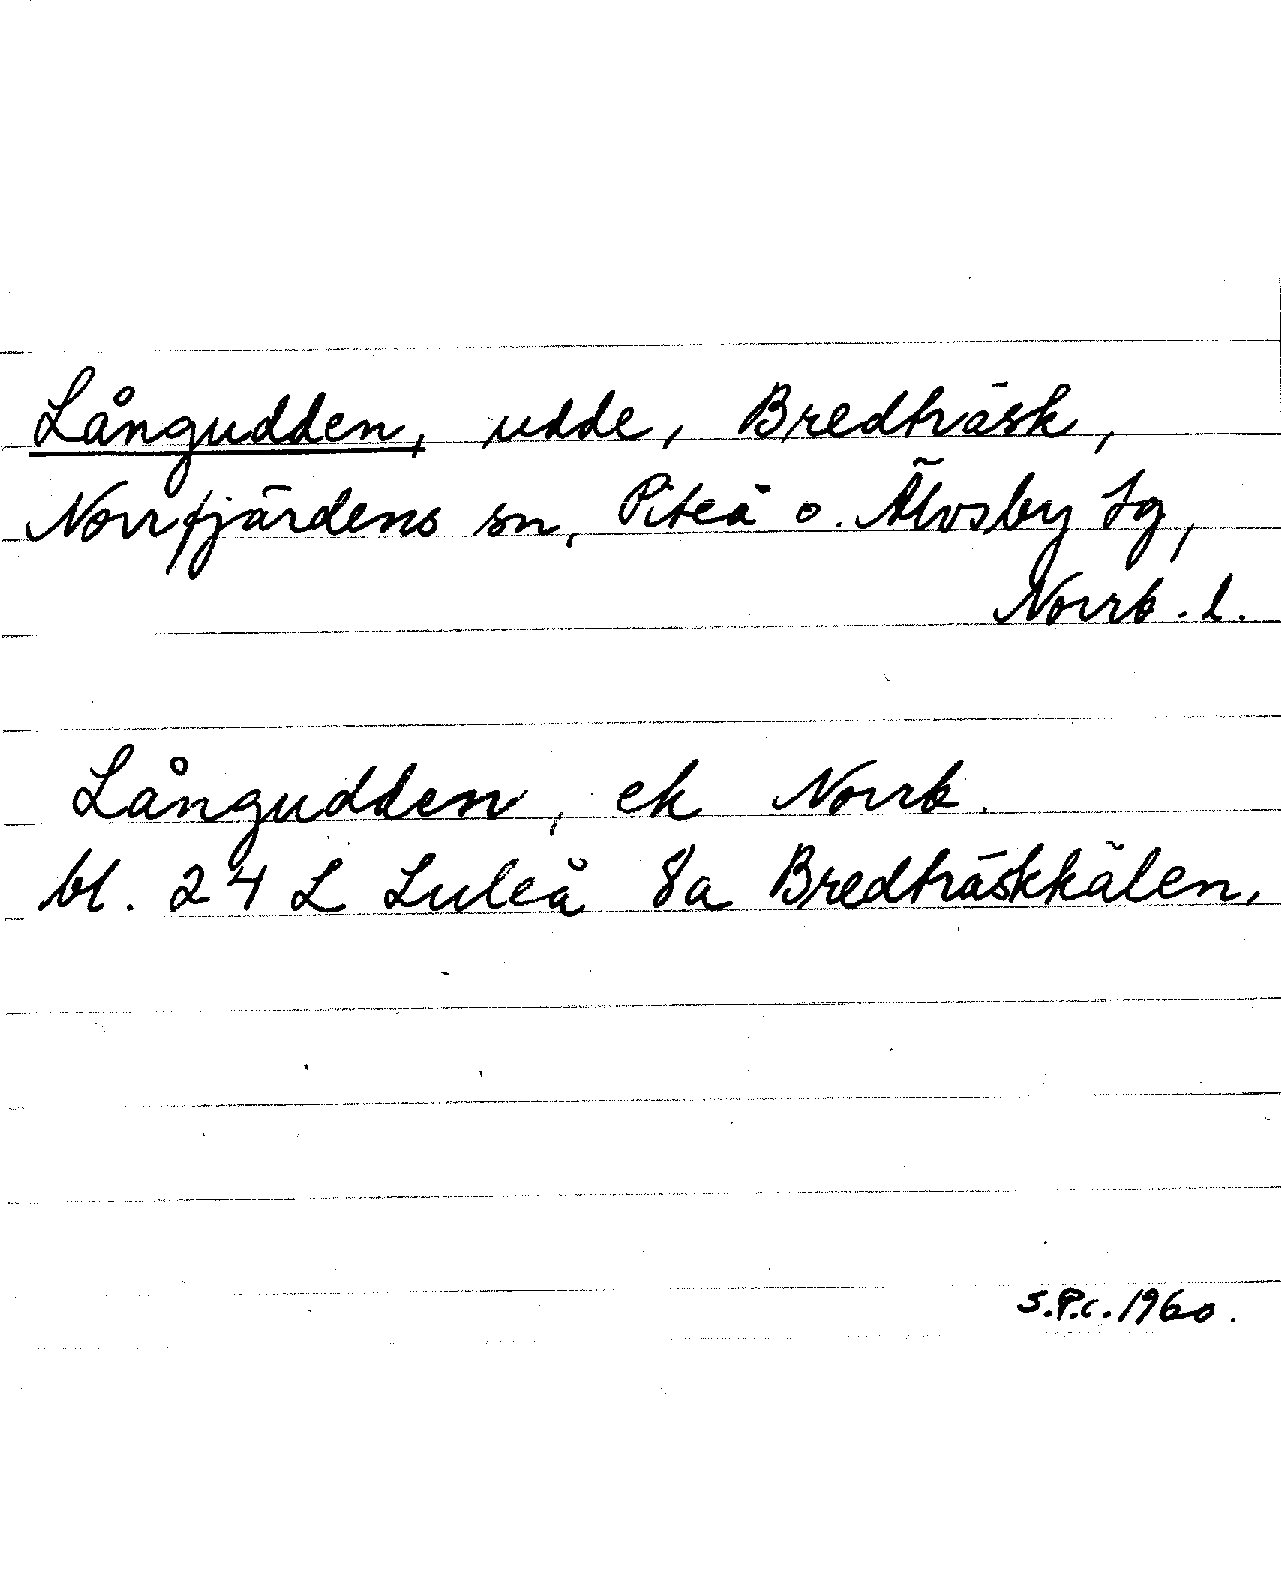 Långudden, udde, Bredträsk,
Norrfjärdens sn, Piteå o. Älvsby tg,
Norrb. l.
Långudden, ek Norrb.
bl. 24 L Luleå 8a Bredträskkälen.
S.P.C. 1960.